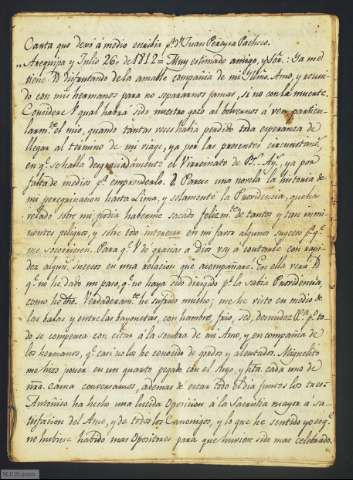 Carta que dexó a medio escribir Dn. Juan Pereyra Pacheco.
Arequipa y Julio 26. de 1812 = Muy estimado amigo, y Sor.: Ya me
tiene V. disfrutando de la amable compañia de mi Ilmo. Amo, y reuni-
do con mis hermanos para no separarnos jamas, si no con la muerte.
Considere V. qual habrá sido nuestro gozo al bolvernos á ver, particu-
larmte. el mio, quando tantas veces habia perdido toda esperanza de
llegar al termino de mi viage, ya por las presentes circunstans.
en qe. se halla desgraciadamente el Virreinato de Bs. Ays., ya por
falta de medios pa. emprenderlo. Parece una novela la historia de
mi peregrinacion hasta Lima, y solamente la Providencia, que ha
velado sobre mi, podia haberme sacado feliz mte. de tantos y tan emi-
nentes peligros, y sobre todo interesar en mi favor algunos sugetos pa. qe.
me socorriesen. Para qe. V. de gracias a Dios voy á contarle con rapi-
dez algunos sucesos en una relacion que acompañará. Por ella verá V.
qe. no he dado un paso, qe. no haya sido dirigido pr. la sabia Providencia,
como he dho. Verdaderamte. he sufrido mucho; me he visto en medio de
las balas y entre las bayonetas, con hambre, frio, sed, desnudez &a. pero to-
do se compensa con estar á la sombra de un Amo, y en compañia de
los hermanos, qe. casi no los he conocido de gordos y alentados. Miguelito
me hizo poner en un quarto pegado con el suyo, y hta. cada uno de
nra. cama conversamos, ademas de estar todo el dia juntos los tres.
Antonino ha hecho una lucida Oposicion á la Sacristia mayor á sa-
tisfacion del Amo, y de todos los Canonigos, y lo que he sentido yo es, qe.
no hubiera habido mas Opositores para que huviera sido mas celebrado.